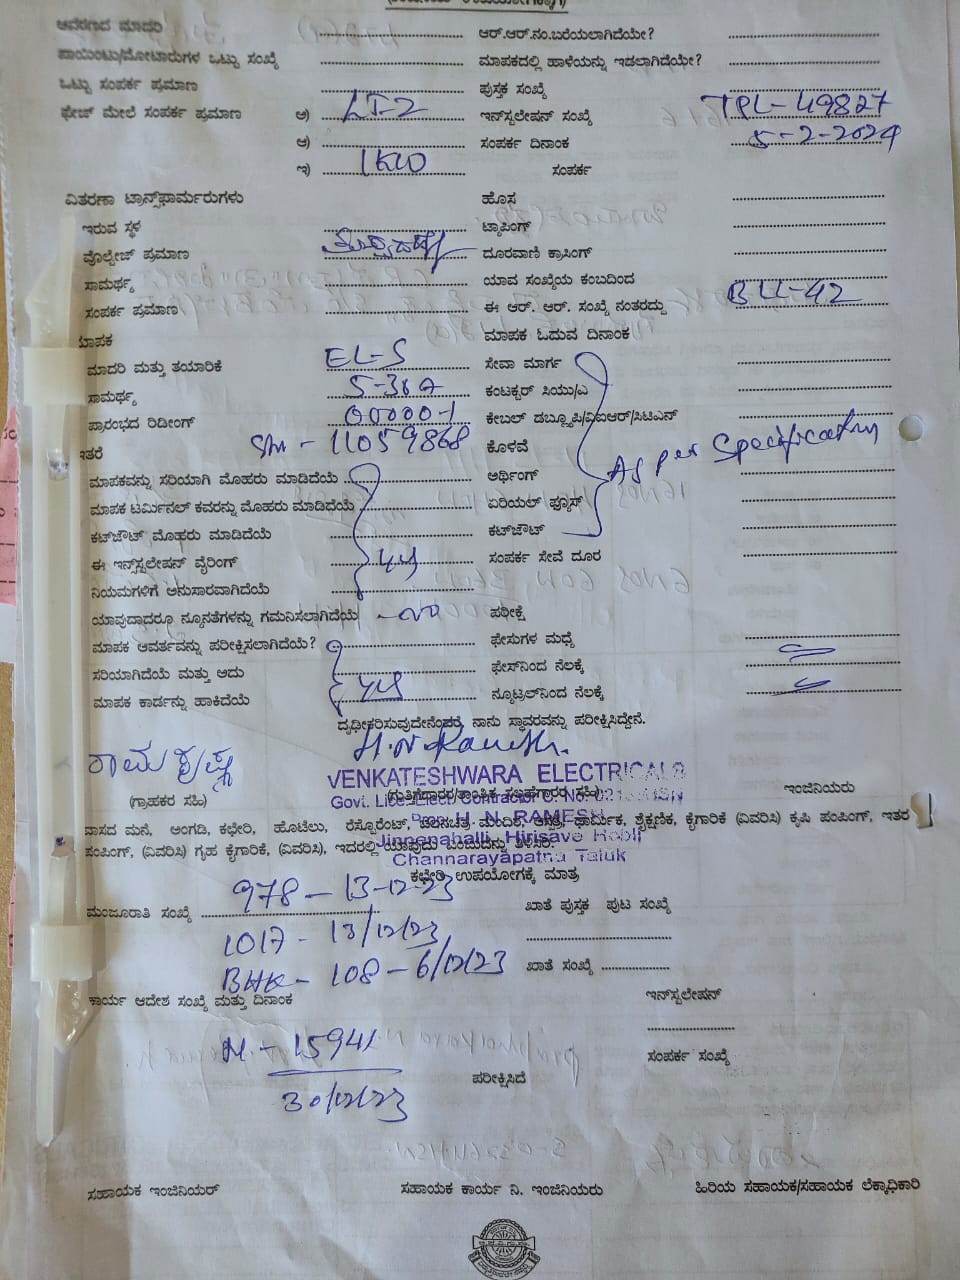 ಆವರಣದ ಮಾದರಿ ಆರ್.ಆರ್.ನಂ.ಬರೆಯಲಾಗಿದೆಯೇ?
ಪಾಯಿಂಟು/ಮೋಟಾರುಗಳ ಒಟ್ಟು ಸಂಖ್ಯೆ ಮಾಪಕದಲ್ಲಿ ಹಾಳೆಯನ್ನು ಇಡಲಾಗಿದೆಯೇ?
ಒಟ್ಟು ಸಂಪರ್ಕ ಪ್ರಮಾಣ ಪುಸ್ತಕ ಸಂಖ್ಯೆ
ಫೇಜ್ ಮೇಲೆ ಸಂಪರ್ಕ ಪ್ರಮಾಣ ಅ) LT-2 ಇನ್‌ಸ್ಟಲೇಷನ್ ಸಂಖ್ಯೆ TPL-49827
ಆ) ಸಂಪರ್ಕ ದಿನಾಂಕ 5-2-2024
ಇ) 1KW ಸಂಪರ್ಕ
ವಿತರಣಾ ಟ್ರಾನ್ಸ್‌ಫಾರ್ಮರುಗಳು ಹೊಸ
ಇರುವ ಸ್ಥಳ ಟ್ಯಾಪಿಂಗ್
ವೊಲ್ಟೇಜ್ ಪ್ರಮಾಣ ದೂರವಾಣಿ ಕ್ರಾಸಿಂಗ್
ಸಾಮರ್ಥ್ಯ ಯಾವ ಸಂಖ್ಯೆಯ ಕಂಬದಿಂದ
ಸಂಪರ್ಕ ಪ್ರಮಾಣ ಈ ಆರ್. ಆರ್. ಸಂಖ್ಯೆ ನಂತರದ್ದು BLL-42
ಮಾಪಕ ಮಾಪಕ ಓದುವ ದಿನಾಂಕ
ಮಾದರಿ ಮತ್ತು ತಯಾರಿಕೆ EL-S ಸೇವಾ ಮಾರ್ಗ
ಸಾಮರ್ಥ್ಯ 5-30A ಕಂಟಕ್ಟರ್ ಸಿಯು/ಎ
ಪ್ರಾರಂಭದ ರಿಡೀಂಗ್ 00000-1 ಕೇಬಲ್ ಡಬ್ಲ್ಯೂಪಿ/ವಿಐಆರ್/ಸಿಟಿಎನ್
ಇತರೆ SM - 11059868 ಕೊಳವೆ As per Specification
ಮಾಪಕವನ್ನು ಸರಿಯಾಗಿ ಮೊಹರು ಮಾಡಿದೆಯೆ ಅರ್ಥಿಂಗ್
ಮಾಪಕ ಟರ್ಮಿನಲ್ ಕವರನ್ನು ಮೊಹರು ಮಾಡಿದೆಯೆ ಏರಿಯಲ್ ಫ್ಯೂಸ್
ಕಟ್‌ಔಟ್ ಮೊಹರು ಮಾಡಿದೆಯೆ ಕಟ್‌ಔಟ್
ಈ ಇನ್‌ಸ್ಟಲೇಷನ್ ವೈರಿಂಗ್ yes ಸಂಪರ್ಕ ಸೇವೆ ದೂರ
ನಿಯಮಗಳಿಗೆ ಅನುಸಾರವಾಗಿದೆಯೆ
ಯಾವುದಾದರೂ ನ್ಯೂನತೆಗಳನ್ನು ಗಮನಿಸಲಾಗಿದೆಯೆ - no ಪರೀಕ್ಷೆ
ಮಾಪಕ ಆವರ್ತವನ್ನು ಪರೀಕ್ಷಿಸಲಾಗಿದೆಯೆ? ಫೇಸುಗಳ ಮಧ್ಯೆ
ಸರಿಯಾಗಿದೆಯೆ ಮತ್ತು ಅದು ಫೇಸ್‌ನಿಂದ ನೆಲಕ್ಕೆ
ಮಾಪಕ ಕಾರ್ಡನ್ನು ಹಾಕಿದೆಯೆ yes ನ್ಯೂಟ್ರಲ್‌ನಿಂದ ನೆಲಕ್ಕೆ
ದೃಢೀಕರಿಸುವುದೇನೆಂದರೆ, ನಾನು ಸ್ಥಾವರವನ್ನು ಪರೀಕ್ಷಿಸಿದ್ದೇನೆ.
ರಾಮಕೃಷ್ಣ H.N Ramesh.
VENKATESHWARA ELECTRICALS
(ಗುತ್ತಿಗೆದಾರರ/ತಾಂತ್ರಿಕ ಸಲಹೆಗಾರರ ಸಹಿ) ಇಂಜಿನಿಯರು
(ಗ್ರಾಹಕರ ಸಹಿ) Govt. Lice. Elect. Contractor
Prop: H. N. RAMESH
ವಾಸದ ಮನೆ, ಅಂಗಡಿ, ಕಛೇರಿ, ಹೊಟೆಲು, ರೆಸ್ಟೊರೆಂಟ್, ಚಲನಚಿತ್ರ ಮಂದಿರ, ಆಸ್ಪತ್ರೆ, ಧಾರ್ಮಿಕ, ಶೈಕ್ಷಣಿಕ, ಕೈಗಾರಿಕೆ (ವಿವರಿಸಿ) ಕೃಷಿ ಪಂಪಿಂಗ್, ಇತರ
Jinnenahalli, Hirisave Hobli
ಪಂಪಿಂಗ್, (ವಿವರಿಸಿ) ಗೃಹ ಕೈಗಾರಿಕೆ, (ವಿವರಿಸಿ), ಇದರಲ್ಲಿ ಯಾವುದು ಎಂಬುದನ್ನು ತಿಳಿಸಿರಿ.
Channarayapatna Taluk
ಕಛೇರಿ ಉಪಯೋಗಕ್ಕೆ ಮಾತ್ರ
978 - 13-12-23
ಮಂಜೂರಾತಿ ಸಂಖ್ಯೆ ಖಾತೆ ಪುಸ್ತಕ ಪುಟ ಸಂಖ್ಯೆ
1017 - 13/12/23
BHK - 108 - 6/12/23 ಖಾತೆ ಸಂಖ್ಯೆ
ಕಾರ್ಯ ಆದೇಶ ಸಂಖ್ಯೆ ಮತ್ತು ದಿನಾಂಕ ಇನ್‌ಸ್ಟಲೇಷನ್
M - 15941
ಸಂಪರ್ಕ ಸಂಖ್ಯೆ
30/12/23 ಪರೀಕ್ಷಿಸಿದೆ
ಸಹಾಯಕ ಇಂಜಿನಿಯರ್ ಸಹಾಯಕ ಕಾರ್ಯ ನಿ. ಇಂಜಿನಿಯರು ಹಿರಿಯ ಸಹಾಯಕ/ಸಹಾಯಕ ಲೆಕ್ಕಾಧಿಕಾರಿ